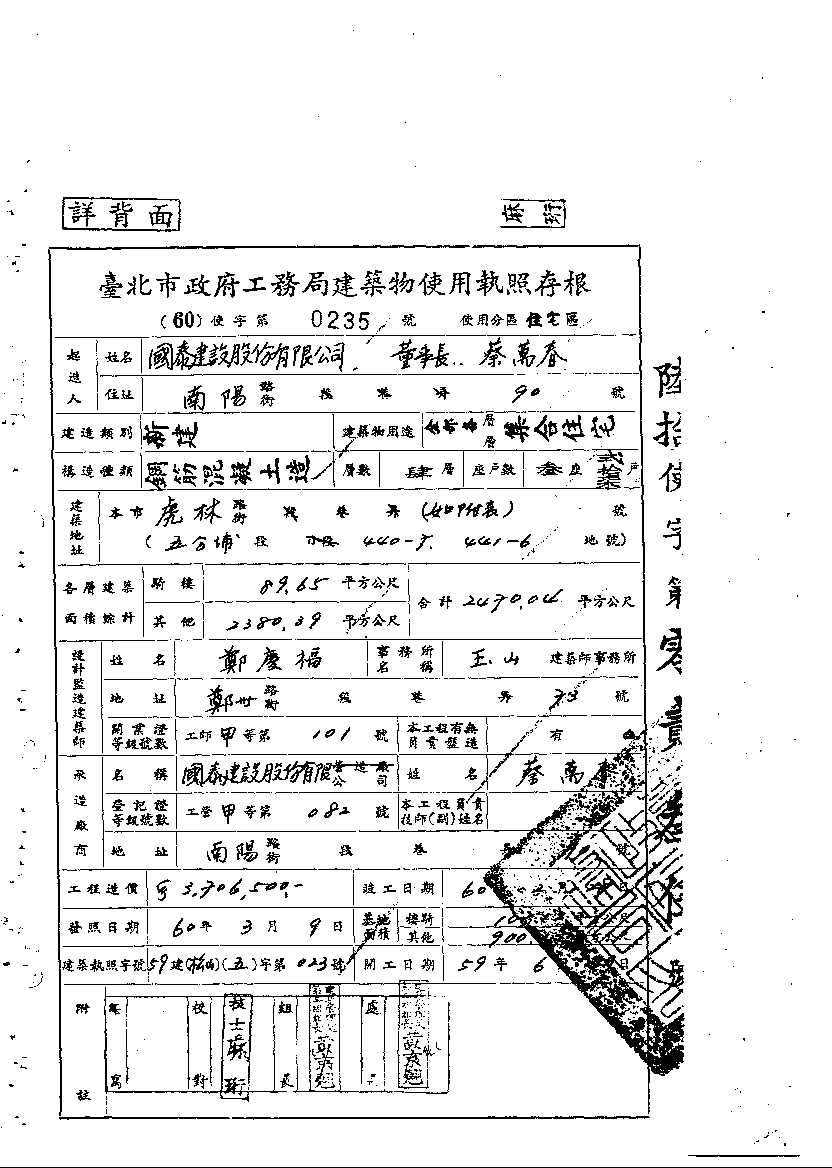 詳背面
麻珩
臺北市政府工務局建築物使用執照存根
(60)使字第 0235 號 使用分區 住宅區
起造人 姓名 國泰建設股份有限公司 董事長 蔡萬春
住址 南陽 路街 段 巷 弄 90 號
建造類別 新建 建築物用途 層層 集合住宅
構造種類 鋼筋混凝土造 層數 肆層 座戶數 叁座 戶
建築地址 本市 虎林 路街 段 巷 弄 (如附表) 號
(五分埔 段 小段 440-7. 441-6 地號)
各層建築面積綜計 騎樓 89.65 平方公尺 合計 2470.04 平方公尺
其他 2380.39 平方公尺
設計監造建築師 姓名 鄭慶福 事務所名稱 玉山 建築師事務所
地址 鄭州 路街 段 巷 弄 73 號
開業證等級號數 工師甲等第 101 號 本工程有無負責監造 有
承造廠商 名稱 國泰建設股份有限營造廠公司 姓名 蔡萬春
登記證等級號數 工營甲等第 082 號 本工程負責技師(副)姓名
地址 南陽 路街 段 巷 號
工程造價 3,706,500.- 竣工日期 60 日
發照日期 60年 3月 9日 基地面積 騎樓
其他 900
建築執照字號 59建(松山)(五)字第 023號 開工日期 59年 6 日
附註 繕寫 校對 技士麻珩 組長 處長
陸拾使字第零貳